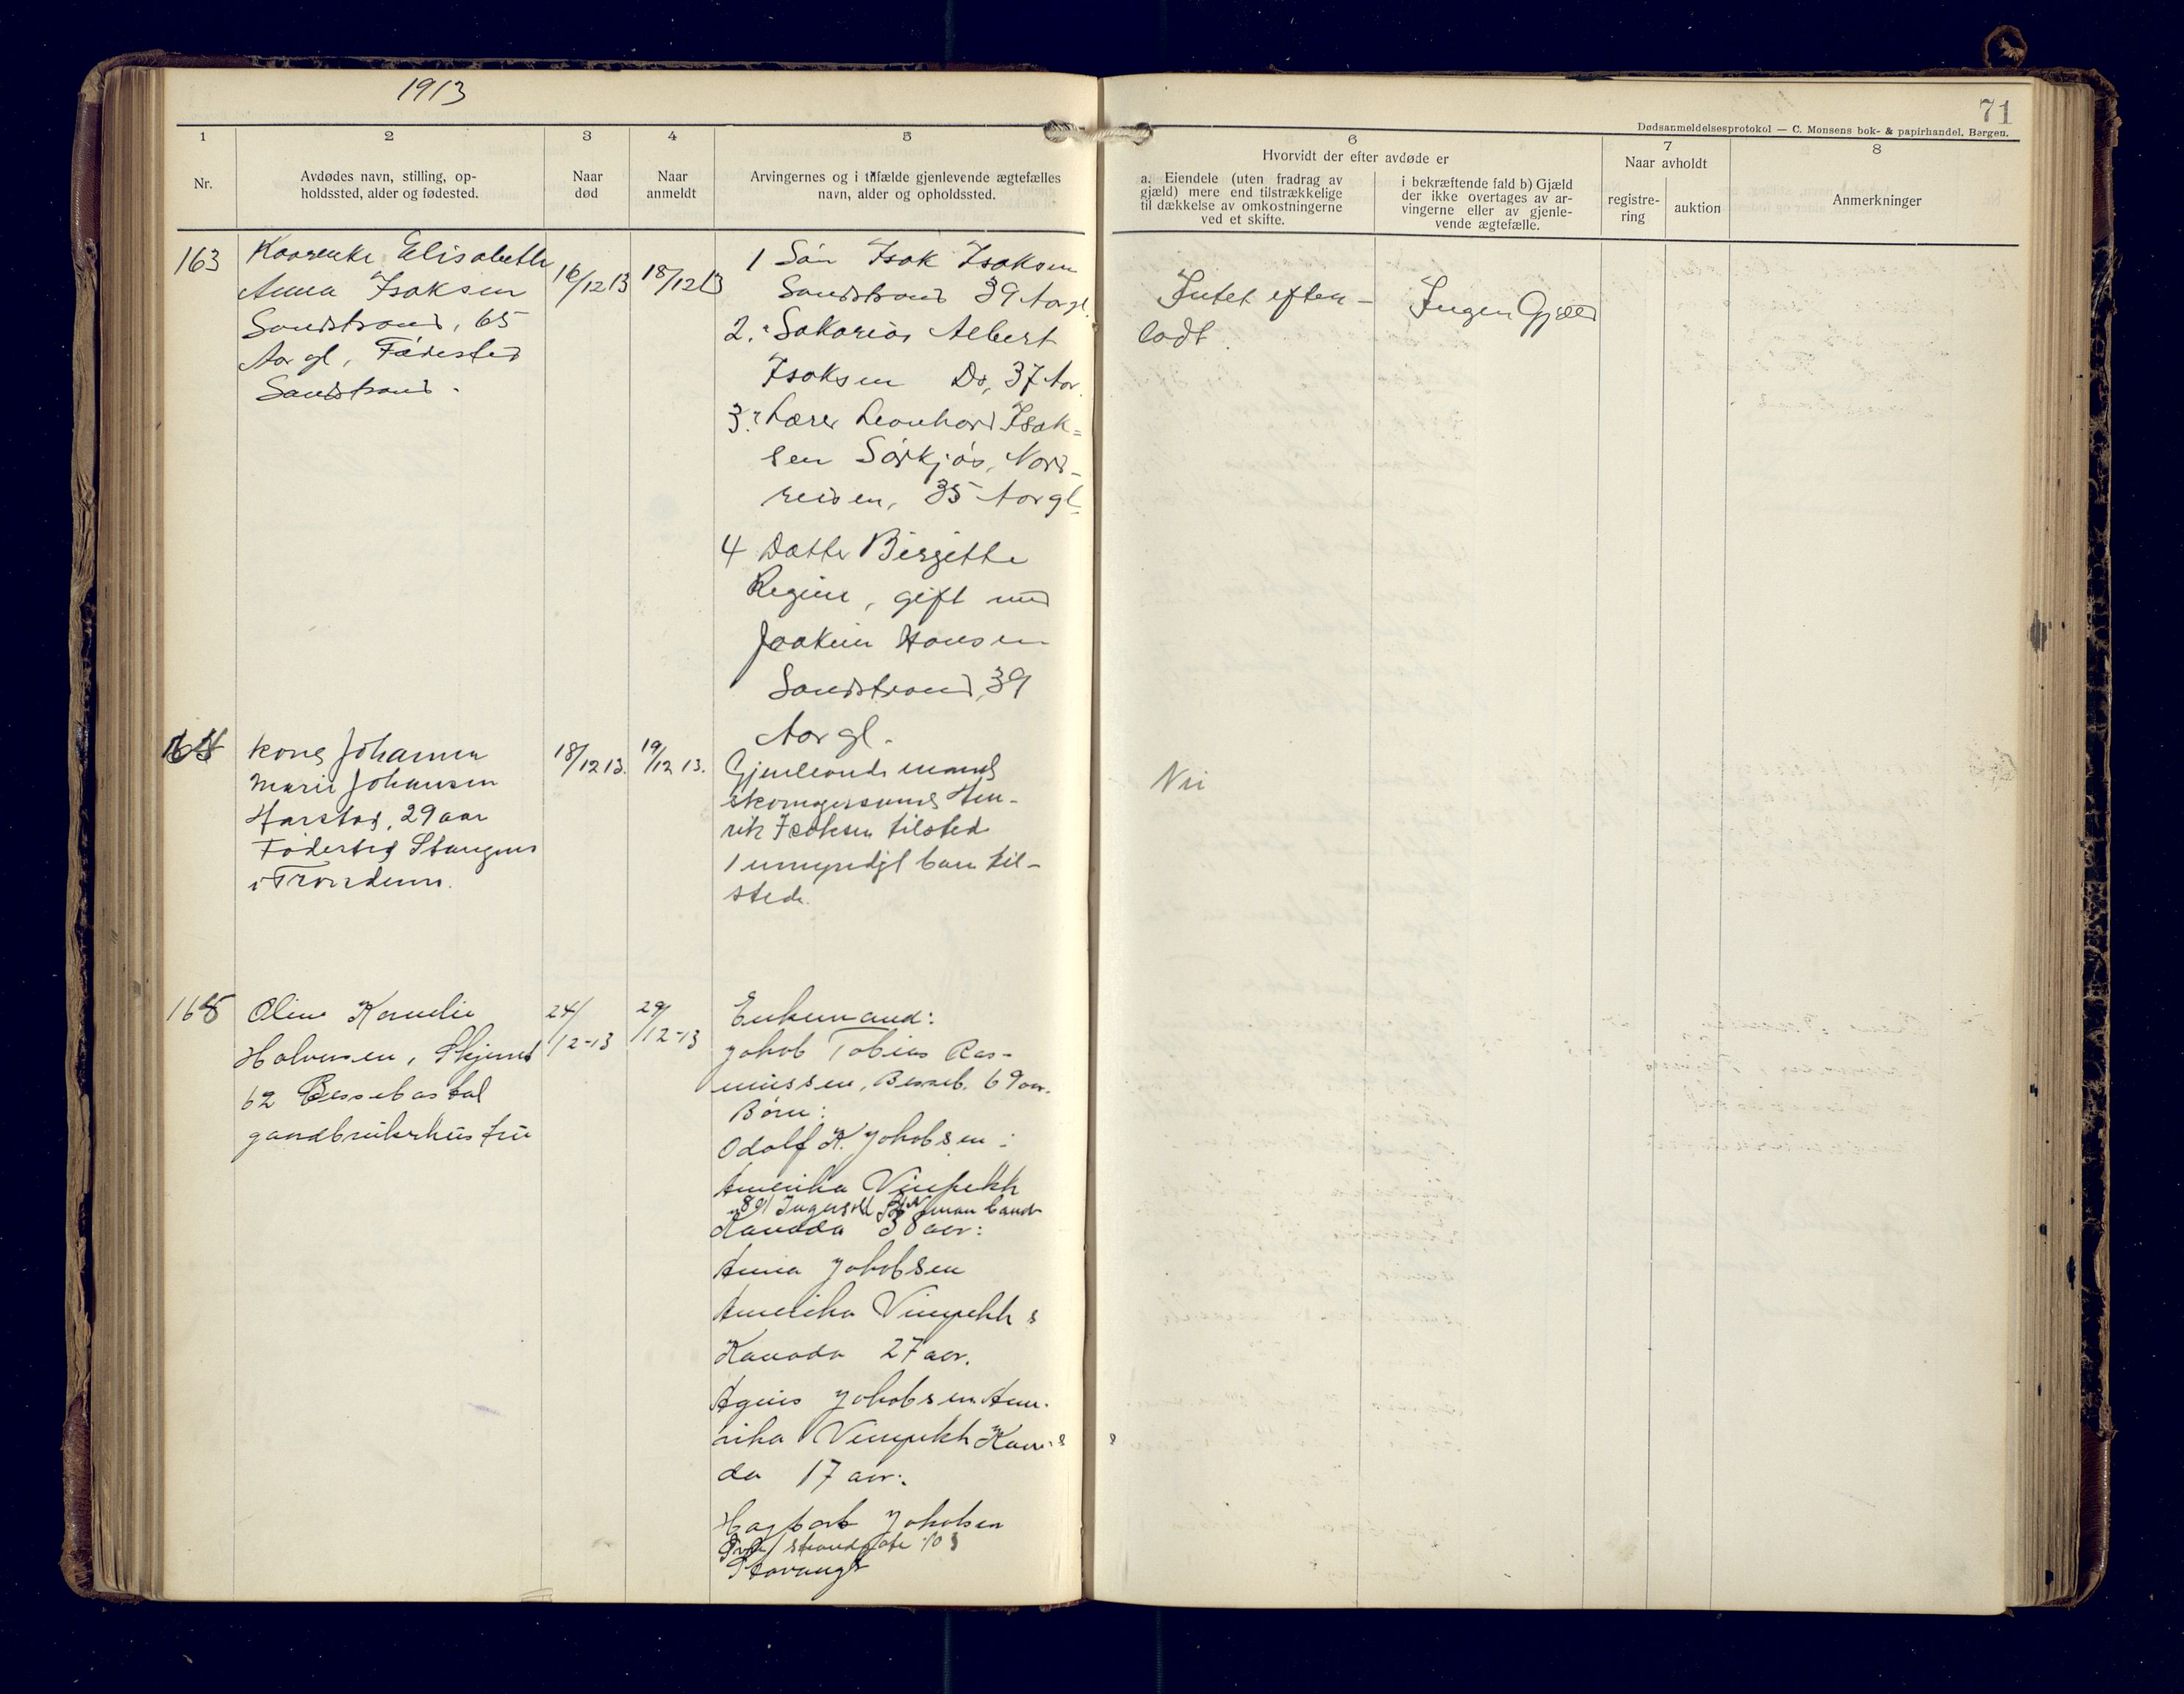 1913
71
Dødsanmeldelsesprotokol — C. Monsens bok- & papirhandel. Bergen.
1
2
3
4
5
6
7
8
Nr.
Avdødes navn, stilling, op-
holdssted, alder og fødested.
Naar
død
Naar
anmeldt
Arvingernes og i tilfælde gjenlevende ægtefælles
navn, alder og opholdssted.
Hvorvidt der efter avdøde er
a. Eiendele (uten fradrag av
gjæld) mere end tilstrækkelige
til dækkelse av omkostningerne
ved et skifte.
i bekræftende fald b) Gjæld
der ikke overtages av ar-
vingerne eller av gjenle-
vende ægtefælle.
Naar avholdt
registre-
ring
auktion
Anmerkninger
163
Elisabeth
Anna Isaksen
Sandstrand, 65
Aar gl, Fødested
Sandstrand.
16/12 13
18/12 13
1 Søn Isak Isaksen
Sandstrand 39 Aar gl.
2. " Sakarias Albert
Isaksen Do, 37 Aar.
3. " Lærer Leonhard Isak=
sen Sørkjos, Nord-
reisen, 35 Aar gl.
4 Datter Birgitte
Regine, gift med
Joakim Hansen
Sandstrand, 39
Aar gl.
Intet efter-
ladt.
Ingen Gjæld
164
Kone Johanna
Marie Johansen
Harstad, 29 aar
Fødested Stangnes
i Trondenes.
18/12 13.
19/12 13.
Gjenlevende mand
Hen-
rik tilstede
1 umyndigt barn til-
stede.
Nei
165
Oline Kornelie
Halvorsen, Skjernd
62
gaardbrukerhustru
24/12-13
29/12-13
Enkemand:
Jakob Tobias Ras-
mussen, 69 aar.
Børn:
Odolf K. Jakobsen:
Amerika Vinpekh
Kanada 38 aar:
Anna Jakobsen
Amerika Vinpekh
Kanada 27 aar.
Agnes Jakobsen Ame-
rika Vinpekh Kana-
da 17 aar.
Hagbart Jakobsen
Stavanger